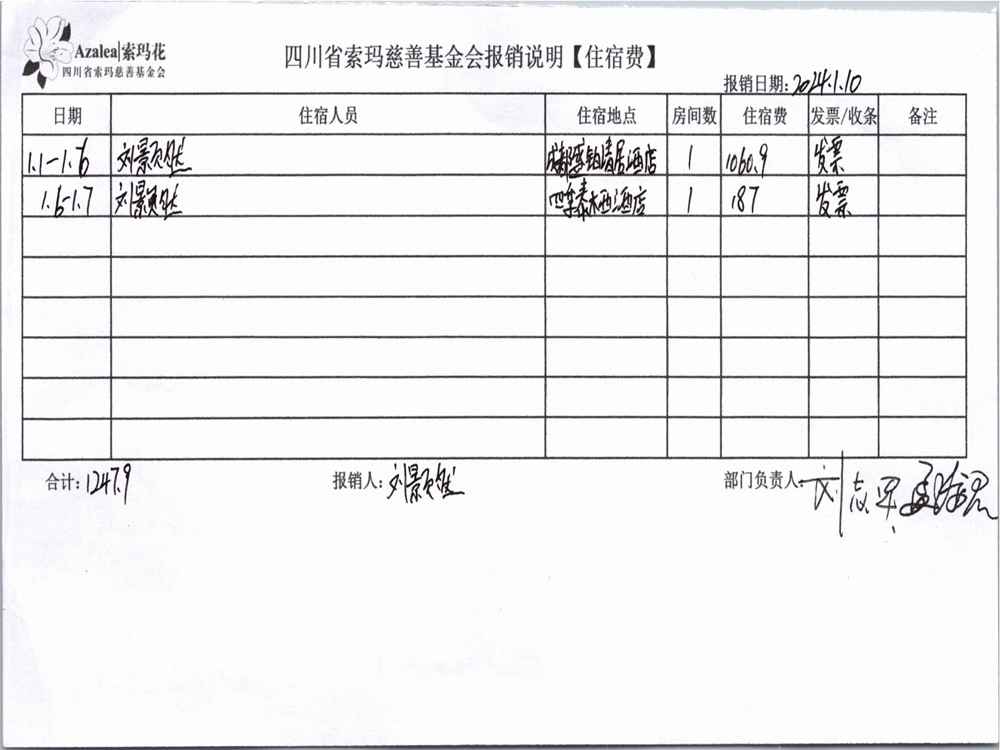 Azalea|索玛花
四川省索玛慈善基金会
四川省索玛慈善基金会报销说明【住宿费】
报销日期:2024.1.10
日期 住宿人员 住宿地点 房间数 住宿费 发票/收条 备注
1.1-1.6 刘景 酒店 1 1060.9 发票
1.6-1.7 刘景 酒店 1 187 发票
合计:1247.9 报销人:刘景 部门负责人: 刘志